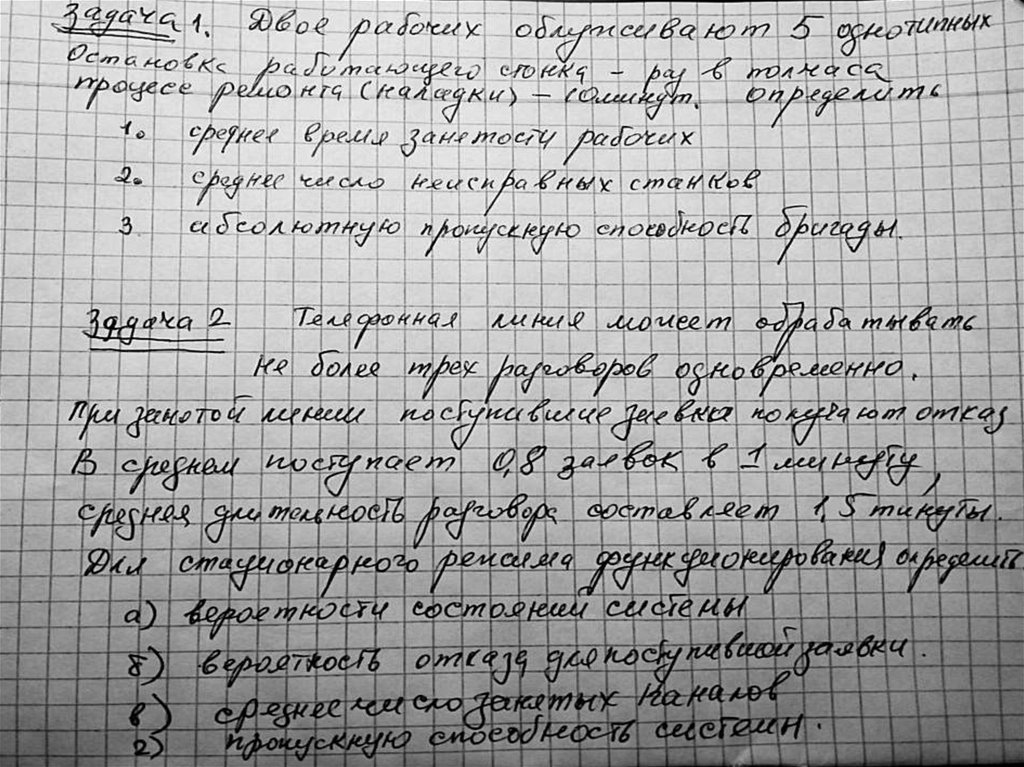 Задача 1. Двое рабочих облуживают 5 однотипных
Остановка работающего станка - раз в полчаса
процесе ремонта (наладки) - 10минут. определить
1. среднее время занятости рабочих
2. среднее число неисправных станков
3. абсолютную пропускную способность бригады.
Задача 2 Телефонная линия может обрабатывать
не более трех разговоров одновременно.
при занятой линии поступившие заявка получают отказ
В среднем поступает 0,8 заявок в 1 минуту,
средняя длительность разговора составляет 1,5 минуты.
Для стационарного режима функционирования определить
а) вероятности состояний системы
б) вероятность отказа для поступившей заявки.
в) среднее число занятых каналов
г) пропускную способность системы.